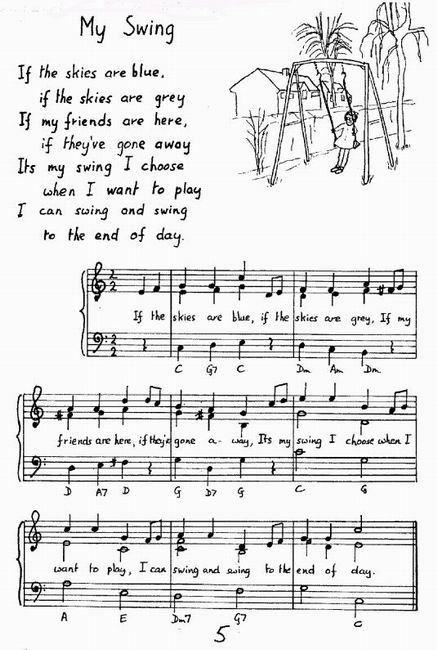 My Swing
If the skies are blue,
if the skies are grey
If my friends are here,
if they've gone away
Its my swing I choose
when I want to play
I can swing and swing
to the end of day.
2 2
If the skies are blue, if the skies are grey, If my
2 2
C G7 C Dm Am Dm
friends are here, if they've gone a- way, Its my swing I choose when I
D A7 D G D7 G C G
want to play, I can swing and swing to the end of day.
A E Dm7 G7 C
5